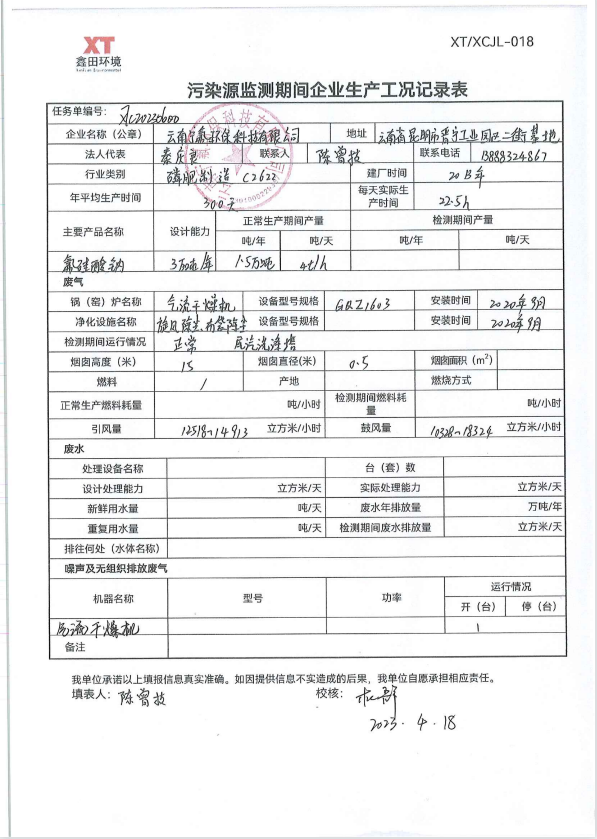 XT
鑫田环境
XT/XCJL-018
污染源监测期间企业生产工况记录表
任务单编号:
企业名称（公章） 云南 环保科技有限公司 地址 云南省昆明市晋宁工业园区二街基地
法人代表 联系人 陈曾技 联系电话
行业类别 磷肥制造 C2622 建厂时间
年平均生产时间 300天 每天实际生产时间 22.5h
主要产品名称 设计能力 正常生产期间产量 检测期间产量
吨/年 吨/天 吨/年 吨/天
氟硅酸钠 3万吨/年 1.5万吨 4t/h
废气
锅（窑）炉名称 气流干燥机 设备型号规格 安装时间 2020年9月
净化设施名称 旋风除尘、布袋除尘 设备型号规格 安装时间 2020年9月
检测期间运行情况 正常 尾汽洗涤塔
烟囱高度（米） 15 烟囱直径(米) 0.5 烟囱面积（m²）
燃料 / 产地 燃烧方式
正常生产燃料耗量 吨/小时 检测期间燃料耗量 吨/小时
引风量 12518~14913 立方米/小时 鼓风量 10328~18324 立方米/小时
废水
处理设备名称 台（套）数
设计处理能力 立方米/天 实际处理能力 立方米/天
新鲜用水量 吨/天 废水年排放量 万吨/年
重复用水量 吨/天 检测期间废水排放量 立方米/天
排往何处（水体名称）
噪声及无组织排放废气
机器名称 型号 功率 运行情况
开（台） 停（台）
气流干燥机 1
备注
我单位承诺以上填报信息真实准确。如因提供信息不实造成的后果，我单位自愿承担相应责任。
填表人: 陈曾技 校核:
2023.4.18